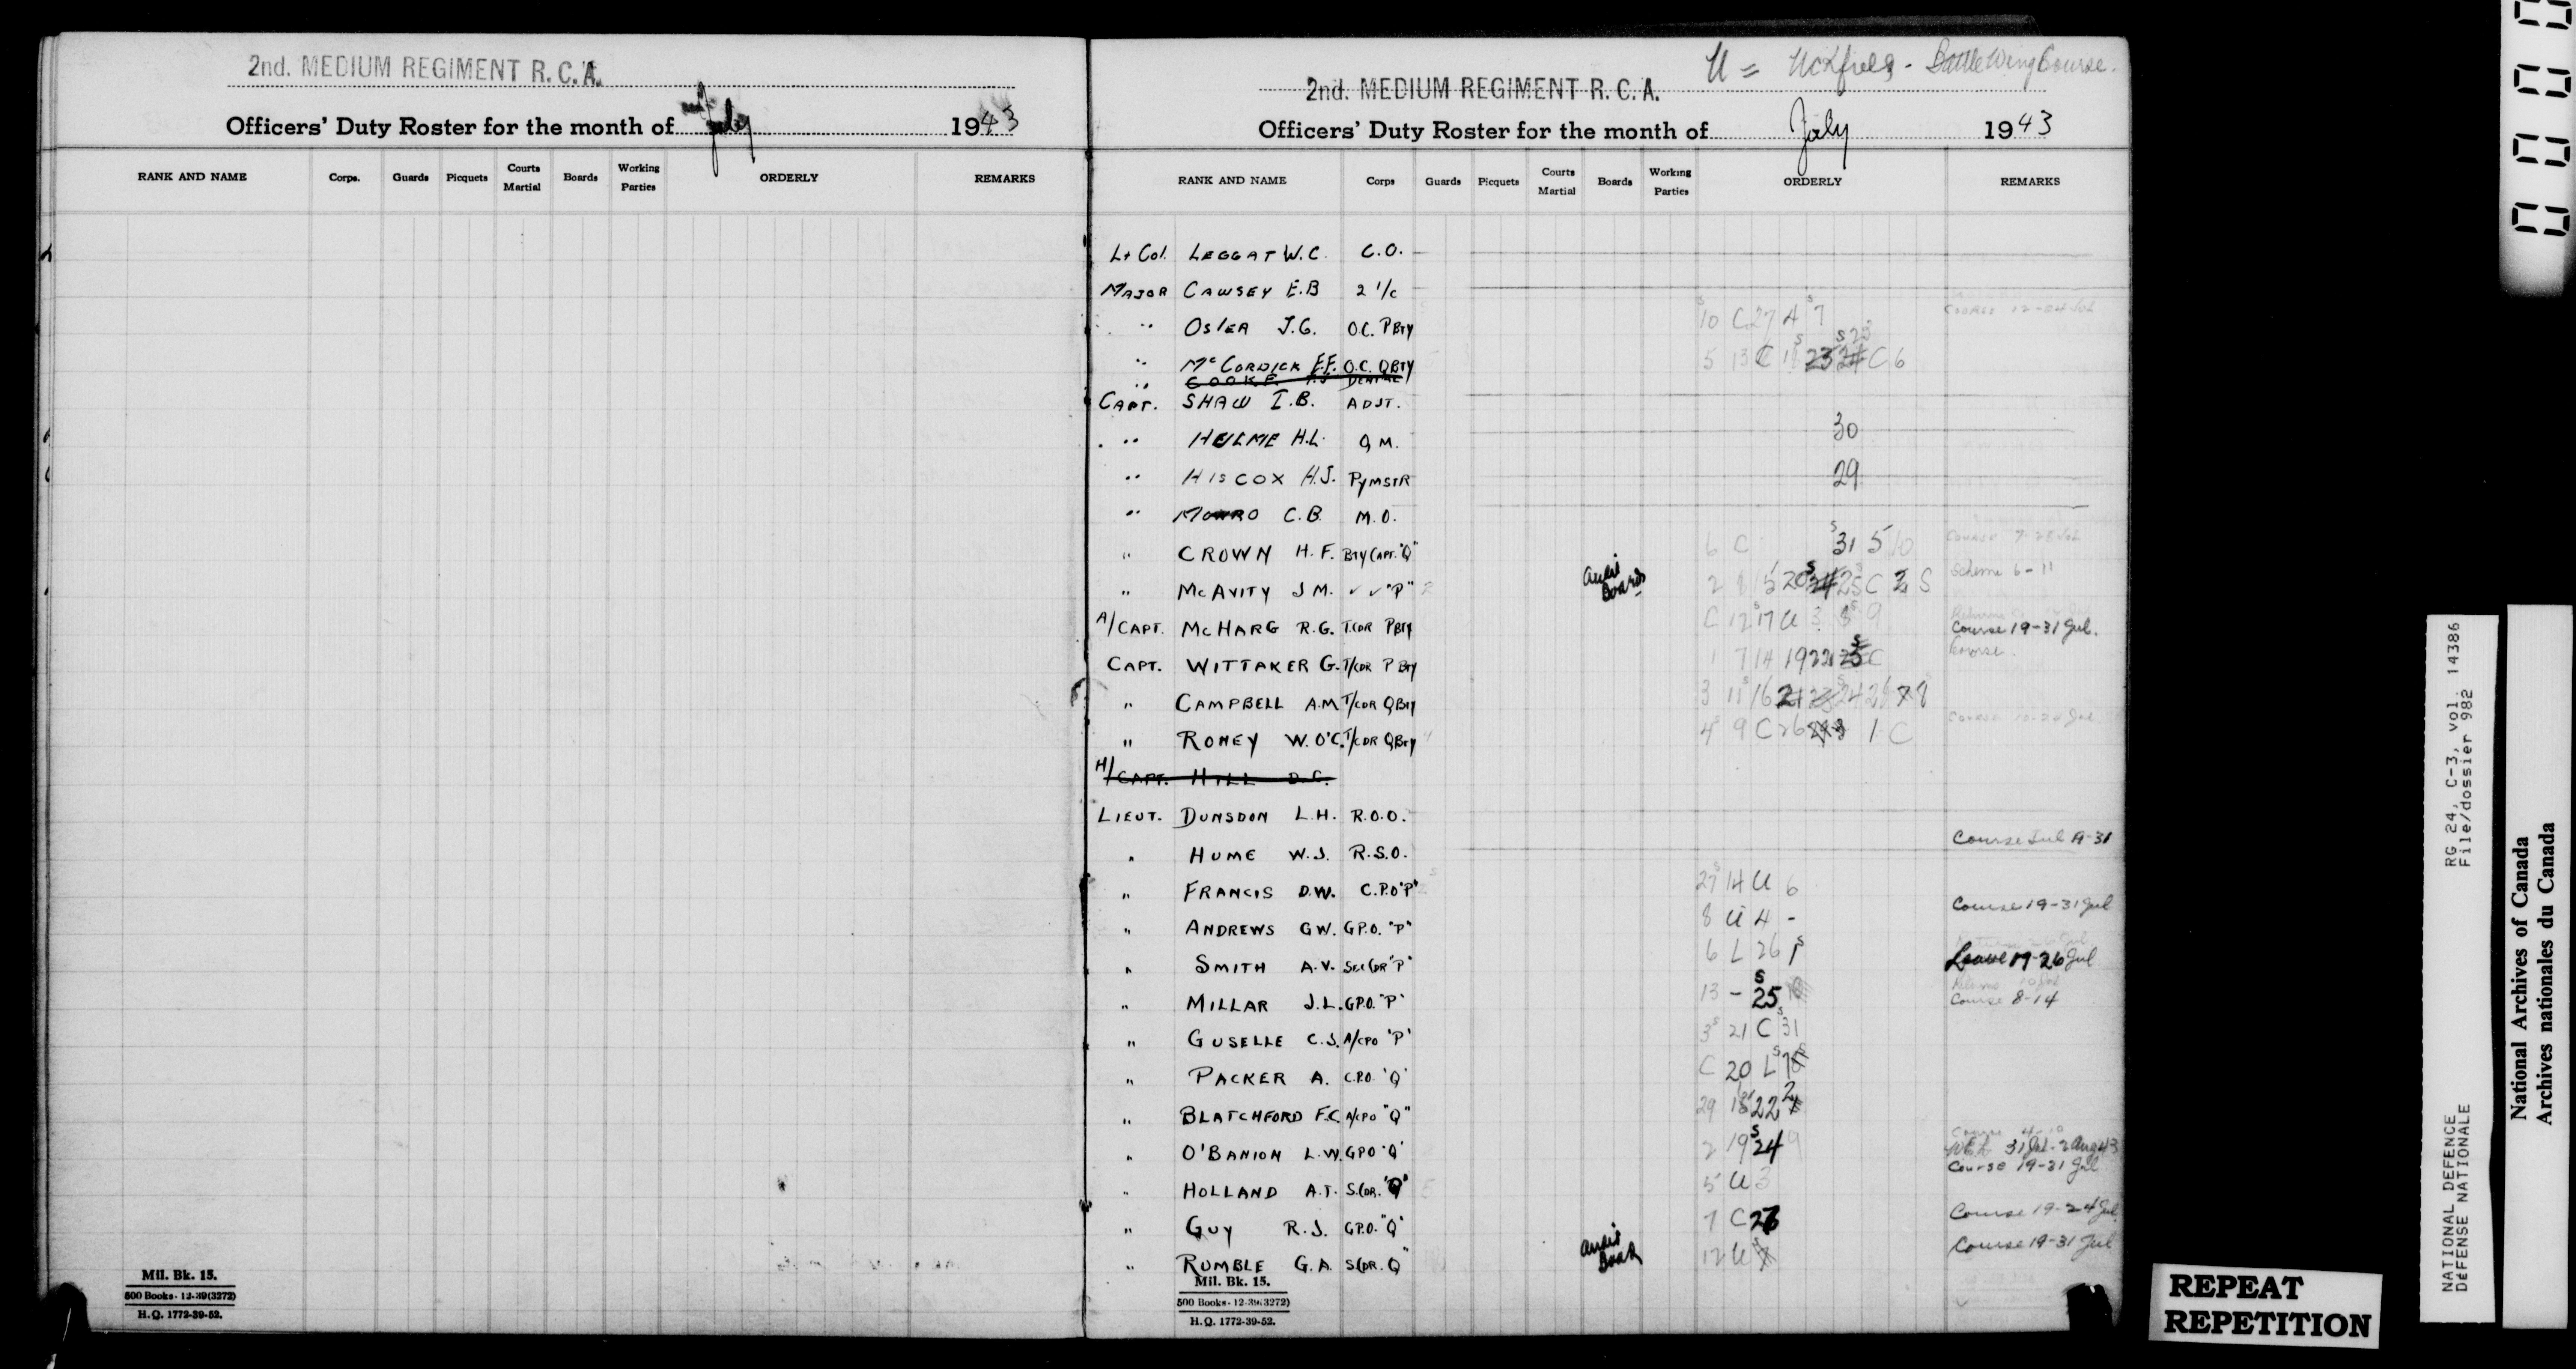 2nd. MEDIUM REGIMENT R. C. A.
Officers' Duty Roster for the month of July 1943
RANK AND NAME Corps. Guards Picquets Courts Martial Boards Working Parties ORDERLY REMARKS
Mil. Bk. 15.
500 Books - 12-39(3272)
H.Q. 1772-39-52.
U = Uckfield - Battle Wing Course.
2nd. MEDIUM REGIMENT R. C. A.
Officers' Duty Roster for the month of July 1943
RANK AND NAME Corps Guards Picquets Courts Martial Boards Working Parties ORDERLY REMARKS
Lt Col. LEGGAT W.C. C.O.
MAJOR CAWSEY E.B 2 1/c
" OSLER J.G. O.C. P Bty 10 C 27 4 7 COURSE 12-24 JUL
" McCORDICK F.F. O.C. Q Bty 5 13 C 23 24 C 6
" COOKE DENTAL
CAPT. SHAW I.B. ADJT.
" HULME H.L. Q M. 30
" HISCOX H.J. PYMSTR 29
" MUNRO C.B. M.O.
" CROWN H.F. Bty CAPT. "Q" 6 C 31 5 10 COURSE 7-28 JUL
" McAVITY J M. ✓ ✓ "P" Audit Board 2 8 15 20 24 25 C 2 S Scheme 6-11
A/CAPT. McHARG R.G. T.CDR P Bty C 12 17 U 3 9 Course 19-31 Jul.
CAPT. WITTAKER G. T/CDR P Bty 1 7 14 19 22 25 C Course.
" CAMPBELL A.M T/CDR Q Bty 3 11 16 21 23 24 28 7 8
" RONEY W. O'C. T/CDR Q Bty 4 9 C 26 1 C Course Jul.
H/CAPT. HILL D.C.
LIEUT. DUNSDON L.H. R.O.O.
" HUME W.J. R.S.O. Course Jul 19-31
" FRANCIS D.W. C.P.O "P" 27 14 U 6
" ANDREWS G W. G P.O. "P" 8 U 4 - Course 19-31 Jul
" SMITH A.V. Sec CDR "P" 6 L 26 1 Leave 19-26 Jul
" MILLAR J.L. G P.O. "P" 13 - 25 Course 8-14
" GUSELLE C.J. A/CPO "P" 3 21 C 31
" PACKER A. C.P.O. "Q" C 20 L
" BLATCHFORD F.C. A/CPO "Q" 29 22 2
" O'BANION L.W. GPO "Q" 2 19 24 9 31 Jul - 2 Aug 43
" HOLLAND A.T. S.CDR. "Q" 5 U 3 Course 19-31 Jul
" GUY R.J. G P.O. "Q" 7 C Course 19-24 Jul
" RUMBLE G.A. S CDR. Q" Audit Board 12 U Course 19-31 Jul
Mil. Bk. 15.
500 Books - 12-39(3272)
H.Q. 1772-39-52.
REPEAT
REPETITION
NATIONAL DEFENCE RG 24, C-3, vol. 14386
DÉFENSE NATIONALE File/dossier 982
National Archives of Canada
Archives nationales du Canada